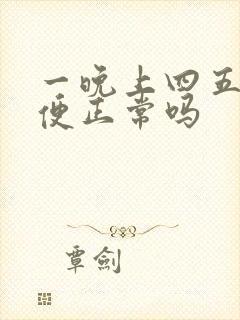 一晚上四五
便正常吗
覃剑